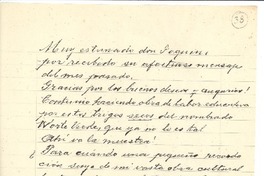 38
Muy estimado don Joaquín:
por recibido su afectuoso mensaje
del mes pasado.
Gracias por los buenos deseos y augurios!
Continúo haciendo obra de labor educativa
por estos trigos secos del nombrado
Norte Verde, que ya no lo es tal
Ahí va la muestra!
Para cuándo una pequeña
ción suya de mi vasta obra cultural